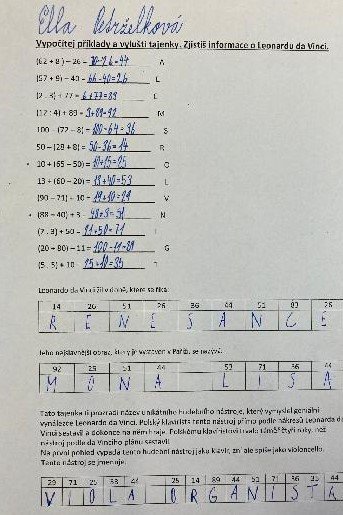 Ella Petrželková
Vypočítej příklady a vylušti tajenky. Zjistíš informace o Leonardu da Vinci.
(62 + 8) – 26 = 70-26=44 A
(57 + 9) – 40 = 66-40=26 E
(2 . 3) + 77 = 6+77=83
(12 : 4) + 89 = 3+89=92 M
100 – (72 – 8) = 100-64=36 S
50 – (28 + 8) = 50-36=14 R
10 + (65 – 50) = 10+15=25 O
13 + (60 – 20) = 13+40=53 L
(90 – 71) + 10 = 19+10=29 V
(88 – 40) + 3 = 48+3=51 N
(7 . 3) + 50 = 21+50=71 I
(20 + 80) – 11 = 100-11=89 G
(5 . 5) + 10 = 25+10=35 T
Leonardo da Vinci žil v době, které se říká:
14 26 51 26 36 44 51 83 26
R E N E S A N C E
Jeho nejslavnější obraz, který je vystaven v Paříži, se nazývá:
92 25 51 44 53 71 36 44
M O N A L I S A
Tato tajenka ti prozradí název unikátního hudebního nástroje, který vymyslel geniální
vynálezce Leonardo da Vinci. Polský klavírista tento nástroj přímo podle nákresů Leonarda da
Vinci sestavil a dokonce na něm hraje. Polskému klavíristovi trvalo téměř čtyři roky, než
nástroj podle da Vinciho plánu sestavil.
Na první pohled vypadá tento hudební nástroj jako klavír, zní ale spíše jako violoncello.
Tento nástroj se jmenuje:
29 71 25 53 44 25 14 89 44 51 71 36 35 44
V I O L A O R G A N I S T A